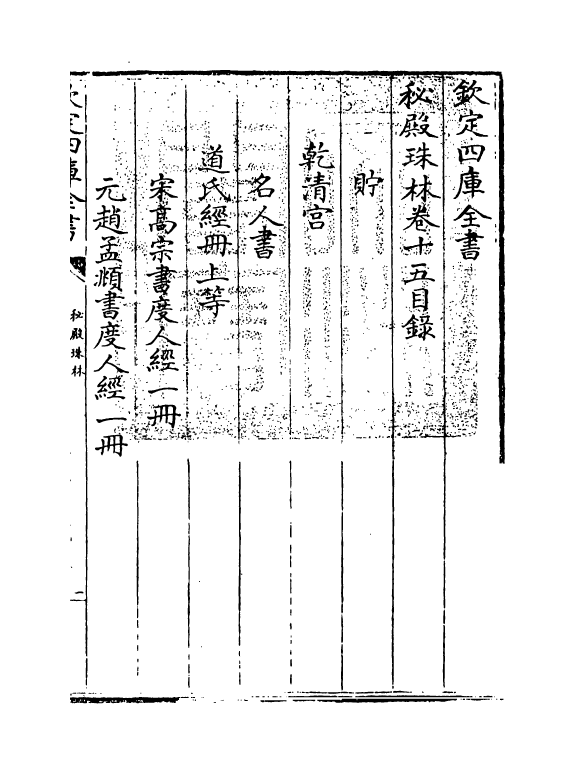 欽定四庫全書
秘殿珠林卷十五目錄
貯
乾清宮
名人書
道氏經冊上等
宋高宗書度人經一冊
元趙孟頫書度人經一冊
欽定四庫全書
秘殿珠林